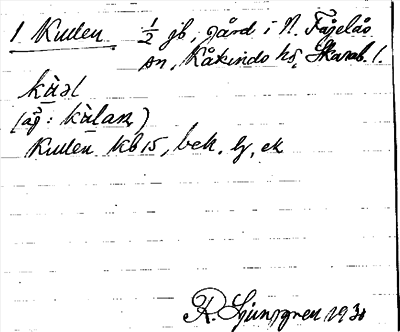 1 Kullen ½ jb, gård i N. Fågelås
sn, Kåkinds hd, Skarab. l.
kùəl
(äβ: kùlan,)
Kullen kb 15, bek. lj, ek
R. Ljunggren 1930